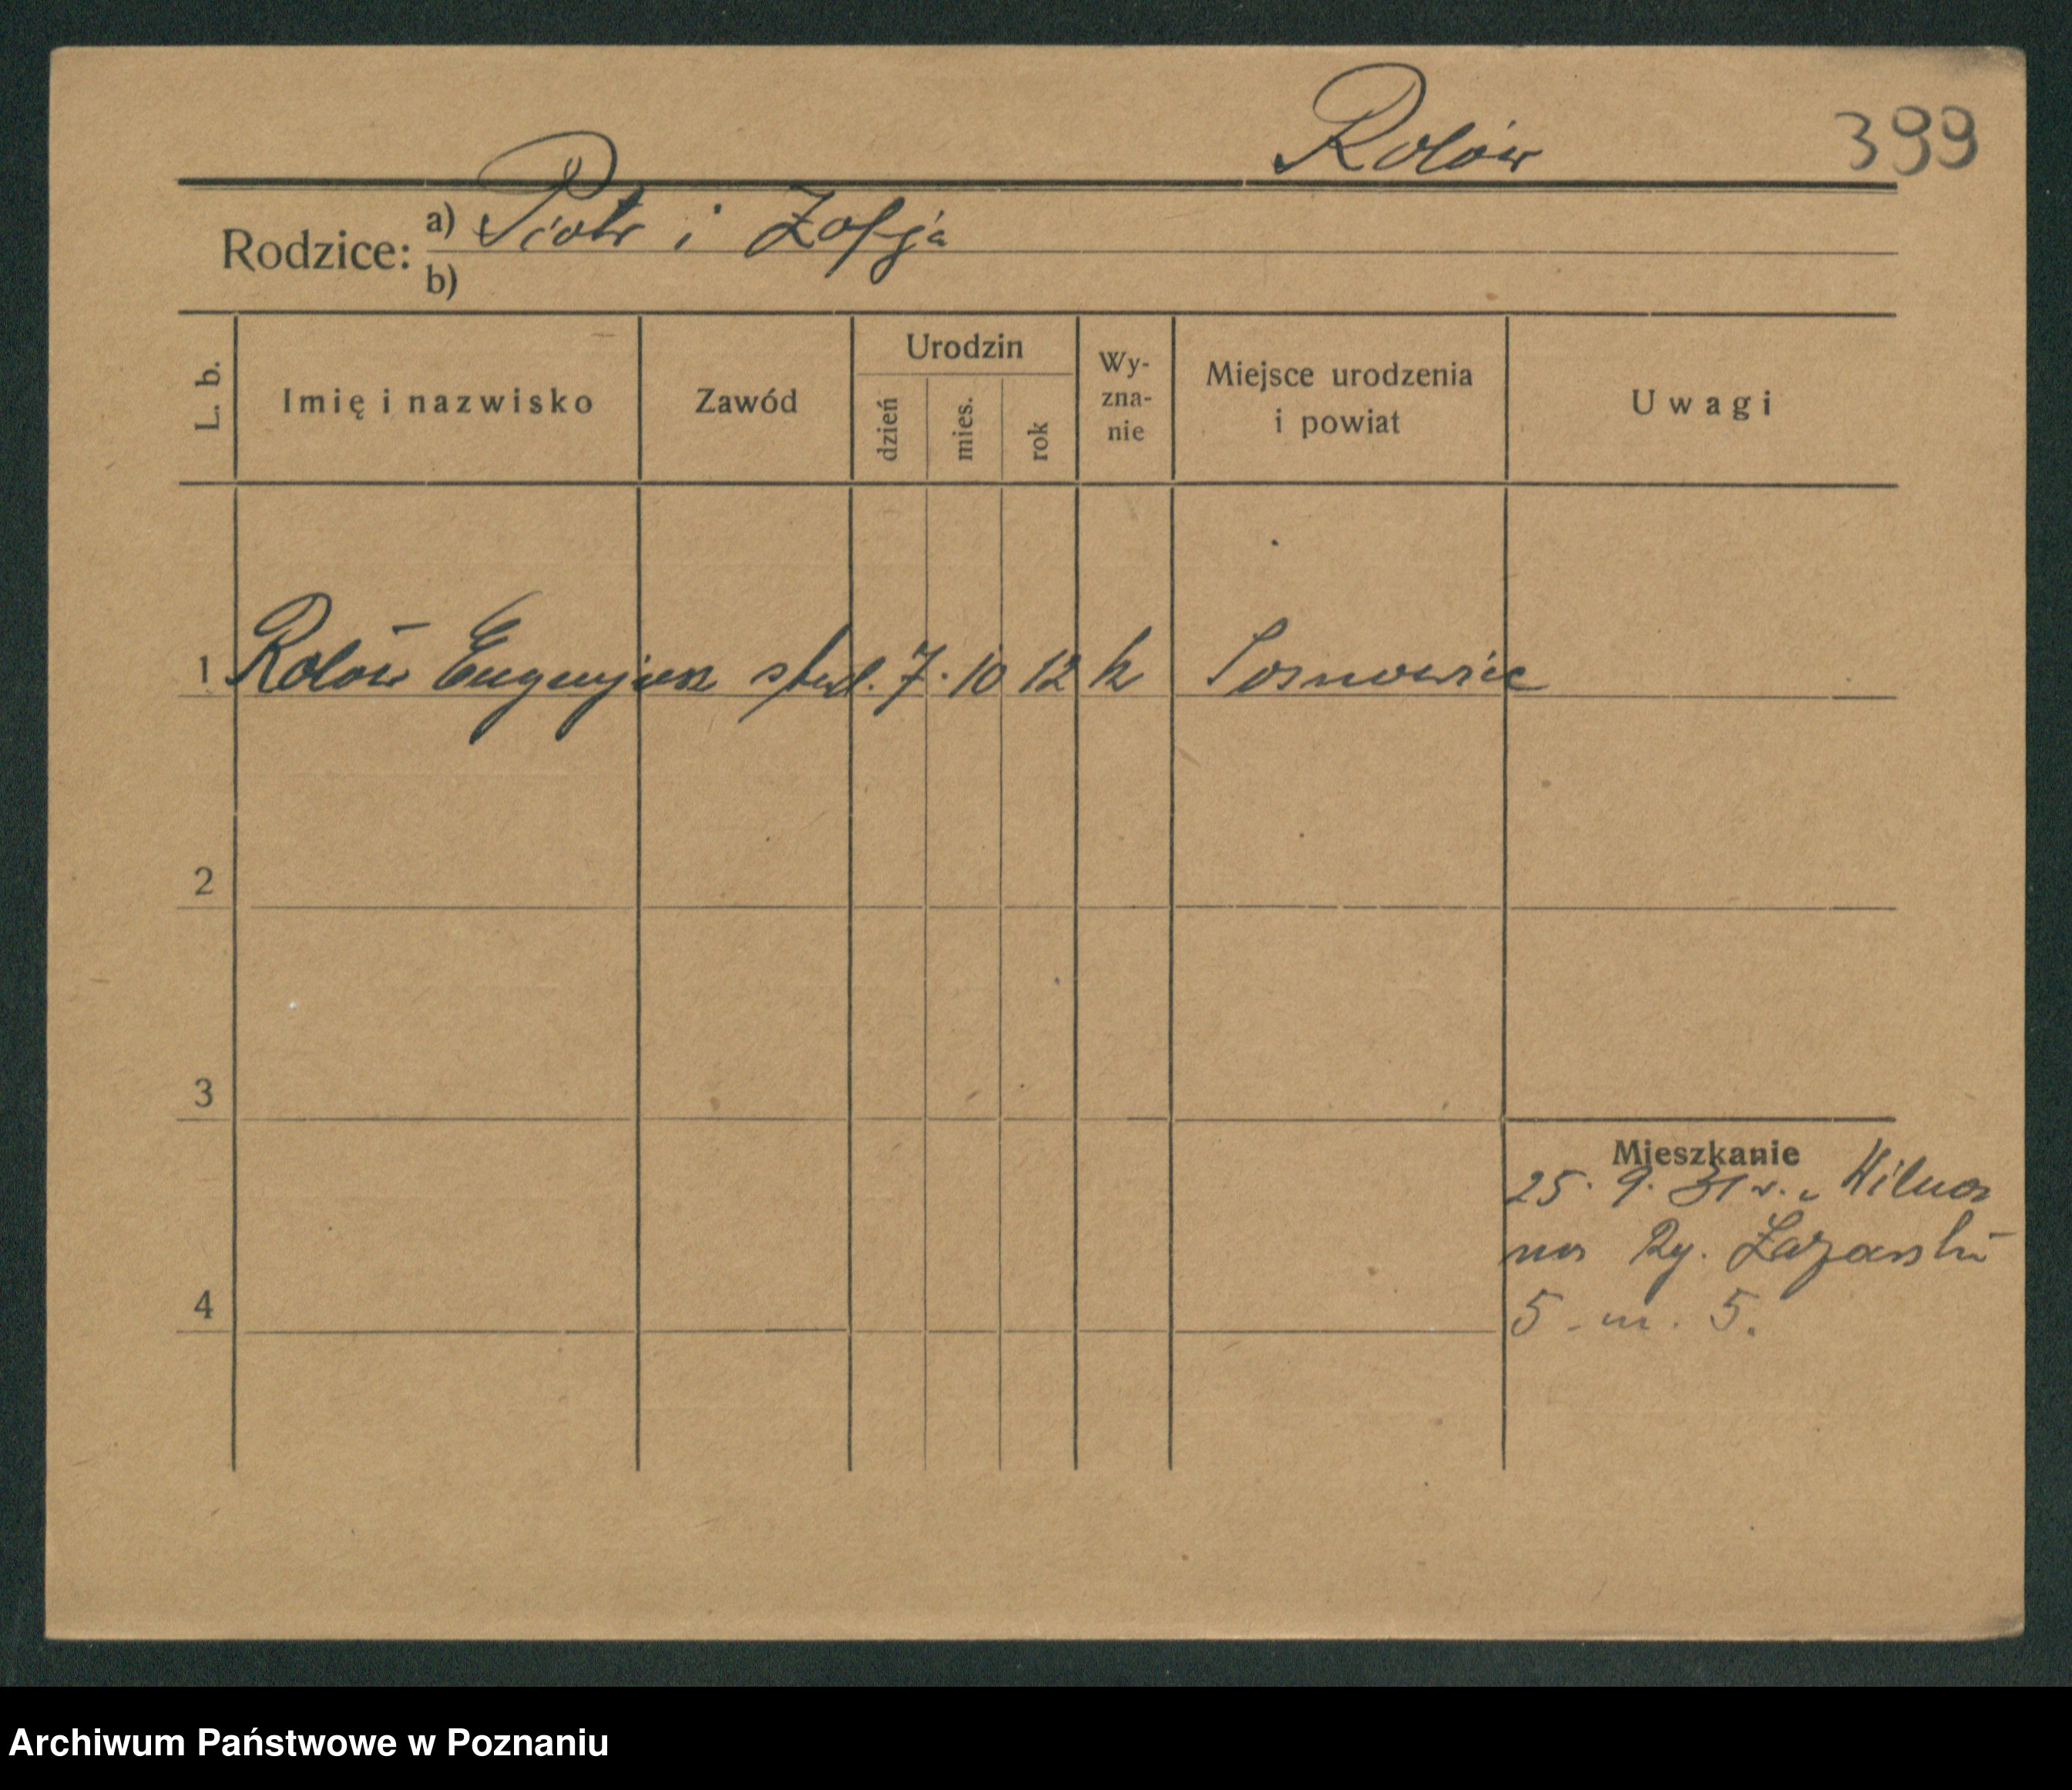 Rolów 399
Rodzice: a) Piotr i Zofja
b)
L. b. Imię i nazwisko Zawód Urodzin dzień mies. rok Wy-zna-nie Miejsce urodzenia i powiat Uwagi
1 Rolów Eugenjusz stud. 7. 10 12 k Sosnowiec
2
3
Mieszkanie
25. 9. 31 r. z Wilna
na Ry. Łazarski
4
5 m. 5.
Archiwum Państwowe w Poznaniu